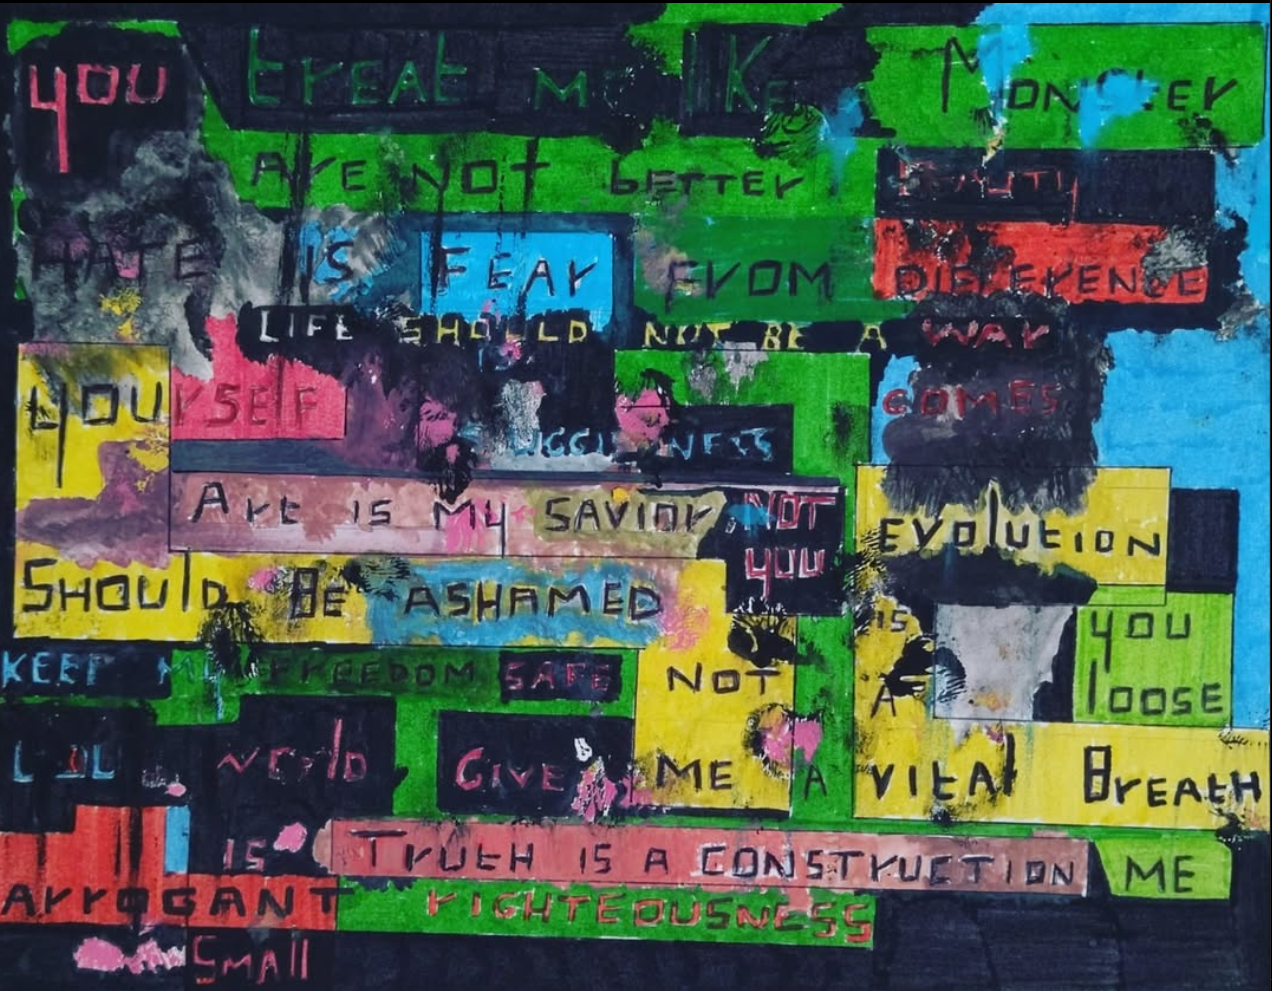 YOU TREAT ME LIKE A MONKEY
ARE NOT BETTER BEAUTY
HATE IS FEAR FROM DIFERENCE
LIFE SHOULD NOT BE A WAR
YOURSELF COMES
ART IS MY SAVIOR, NOT
YOU
EVOLUTION
SHOULD BE ASHAMED IS YOU
KEEP MY FREEDOM SAFE NOT A LOOSE
WORLD GIVE ME A VITAL BREATH
IS TRUTH IS A CONSTRUCTION ME
ARROGANT RIGHTEOUSNESS
SMALL